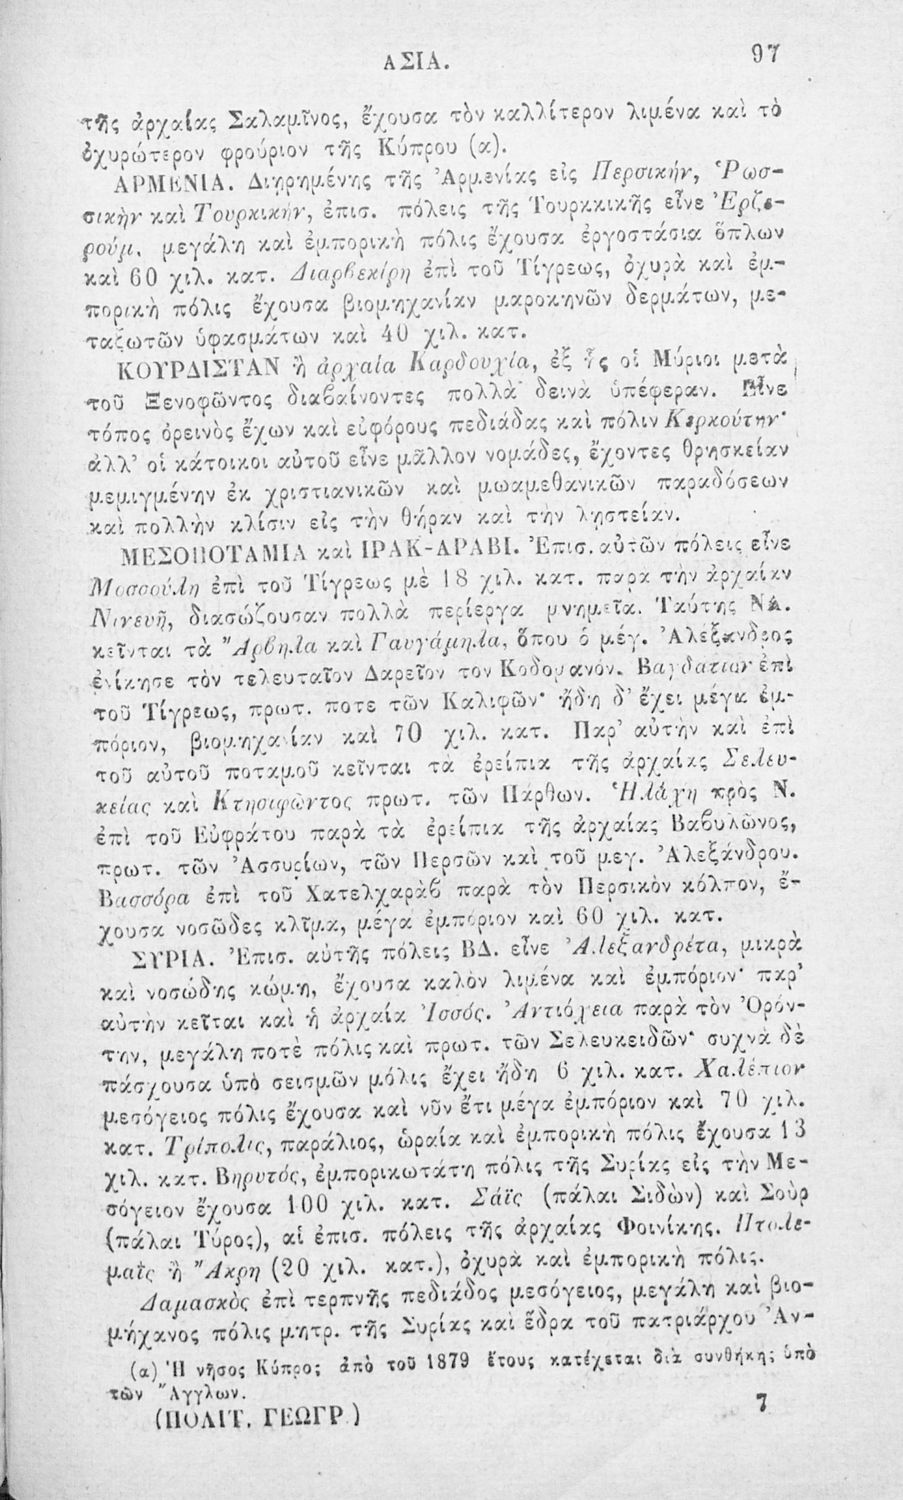 ΑΣΙΑ. 97
τῆς ἀρχαίας Σαλαμῖνος, ἔχουσα τὸν καλλίτερον λιμένα καὶ τὸ
ὀχυρώτερον φρούριον τῆς Κύπρου (α).
ΑΡΜΕΝΙΑ. Διῃρημένης τῆς Ἀρμενίας εἰς Περσικήν, Ῥωσ-
σικὴν καὶ Τουρκικήν, ἐπισ. πόλεις τῆς Τουρκικῆς εἶνε Ἐρζε-
ρούμ, μεγάλη καὶ ἐμπορικὴ πόλις ἔχουσα ἐργοστάσια ὅπλων
καὶ 60 χιλ. κατ. Διαρβεκίρη ἐπὶ τοῦ Τίγρεως, ὀχυρὰ καὶ ἐμ-
πορικὴ πόλις ἔχουσα βιομηχανίαν μαροκηνῶν δερμάτων, με-
ταξωτῶν ὑφασμάτων καὶ 40 χιλ. κατ.
ΚΟΥΡΔΙΣΤΑΝ ἢ ἀρχαία Καρδουχία, ἐξ ἧς οἱ Μύριοι μετὰ
τοῦ Ξενοφῶντος διαβαίνοντες πολλὰ δεινὰ ὑπέφεραν. Εἶνε
τόπος ὀρεινὸς ἔχων καὶ εὐφόρους πεδιάδας καὶ πόλιν Κερκούτην·
ἀλλ' οἱ κάτοικοι αὐτοῦ εἶνε μᾶλλον νομάδες, ἔχοντες θρησκείαν
μεμιγμένην ἐκ χριστιανικῶν καὶ μωαμεθανικῶν παραδόσεων
καὶ πολλὴν κλίσιν εἰς τὴν θήραν καὶ τὴν λῃστείαν.
ΜΕΣΟΠΟΤΑΜΙΑ καὶ ΙΡΑΚ-ΑΡΑΒΙ. Ἐπισ. αὐτῶν πόλεις εἶνε
Μοσσούλη ἐπὶ τοῦ Τίγρεως μὲ 18 χιλ. κατ. παρὰ τὴν ἀρχαίαν
Νινευῆ, διασώζουσαν πολλὰ περίεργα μνημεῖα. Ταύτης ΝΑ.
κεῖνται τὰ Ἄρβηλα καὶ Γαυγάμηλα, ὅπου ὁ μέγ. Ἀλέξανδρος
ἐνίκησε τὸν τελευταῖον Δαρεῖον τον Κοδομανόν. Βαγδατιων ἐπὶ
τοῦ Τίγρεως, πρωτ. ποτε τῶν Καλιφῶν· ἤδη δ' ἔχει μέγα ἐμ-
πόριον, βιομηχανίαν καὶ 70 χιλ. κατ. Παρ' αὐτὴν καὶ ἐπὶ
τοῦ αὐτοῦ ποταμοῦ κεῖνται τὰ ἐρείπια τῆς ἀρχαίας Σελευ-
κείας καὶ Κτησιφῶντος πρωτ. τῶν Πάρθων. Ἡλάχη πρὸς Ν.
ἐπὶ τοῦ Εὐφράτου παρὰ τὰ ἐρείπια τῆς ἀρχαίας Βαβυλῶνος,
πρωτ. τῶν Ἀσσυρίων, τῶν Περσῶν καὶ τοῦ μεγ. Ἀλεξάνδρου.
Βασσόρα ἐπὶ τοῦ Χατελχαρὰβ παρὰ τὸν Περσικὸν κόλπον, ἔ-
χουσα νοσῶδες κλῖμα, μέγα ἐμπόριον καὶ 60 χιλ. κατ.
ΣΥΡΙΑ. Ἐπισ. αὐτῆς πόλεις ΒΔ. εἶνε Ἀλεξανδρέτα, μικρὰ
καὶ νοσώδης κώμη, ἔχουσα καλὸν λιμένα καὶ ἐμπόριον· παρ'
αὐτὴν κεῖται καὶ ἡ ἀρχαία Ἰσσός. Ἀντιόχεια παρὰ τὸν Ὀρόν-
την, μεγάλη ποτὲ πόλις καὶ πρωτ. τῶν Σελευκειδῶν· συχνὰ δὲ
πάσχουσα ὑπὸ σεισμῶν μόλις ἔχει ἤδη 6 χιλ. κατ. Χαλέπιον
μεσόγειος πόλις ἔχουσα καὶ νῦν ἔτι μέγα ἐμπόριον καὶ 70 χιλ.
κατ. Τρίπολις, παράλιος, ὡραία καὶ ἐμπορικὴ πόλις ἔχουσα 13
χιλ. κατ. Βηρυτός, ἐμπορικωτάτη πόλις τῆς Συρίας εἰς τὴν Με-
σόγειον ἔχουσα 100 χιλ. κατ. Σάϊς (πάλαι Σιδὼν) καὶ Σοὺρ
(πάλαι Τύρος), αἱ ἐπισ. πόλεις τῆς ἀρχαίας Φοινίκης. Πτολε-
μαῒς ἢ Ἄκρη (20 χιλ. κατ.), ὀχυρὰ καὶ ἐμπορικὴ πόλις.
Δαμασκὸς ἐπὶ τερπνῆς πεδιάδος μεσόγειος, μεγάλη καὶ βιο-
μήχανος πόλις μητρ. τῆς Συρίας καὶ ἕδρα τοῦ πατριάρχου Ἀν-
(α) Ἡ νῆσος Κύπρος ἀπὸ τοῦ 1879 ἔτους κατέχεται διὰ συνθήκης ὑπὸ
τῶν Ἄγγλων.
(ΠΟΛΙΤ. ΓΕΩΓΡ.) 7